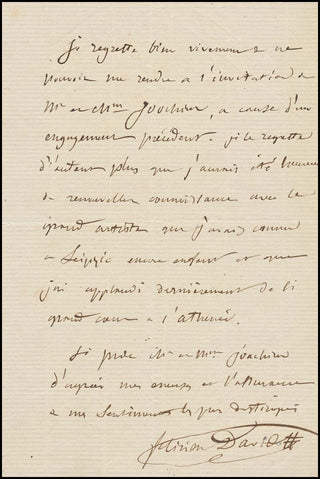 Je regrette bien vivement de ne
pouvoir me rendre a l'invitation de
Mr et Mm Joachim, a cause d'un
engagement précédent. je le regrette
d'autant plus que j'aurais été heureux
de renouveller connaissance avec le
grand artiste que j'avais connu
a Leipzic encore enfant et que
j'ai applaudi dernièrement de si
grand cœur a l'athenée.
Je prie Mr et Mm joachim
d'agréer mes excuses et l'assurance
de mes sentiments les plus distingués
félicien David